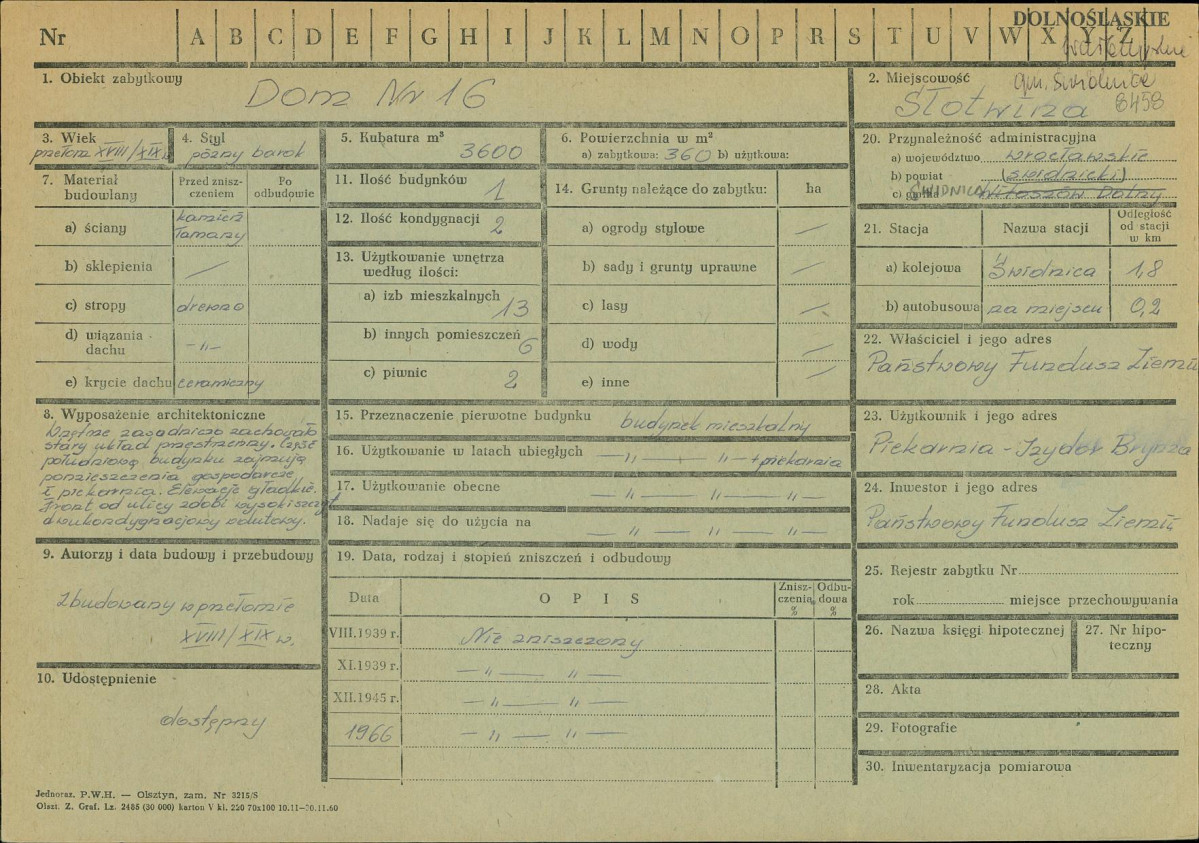 Nr A B C D E F G H I J K L M N O P R S T U V W X Y Z
DOLNOŚLĄSKIE
wałbrzyskie
1. Obiekt zabytkowy
Dom Nr 16
2. Miejscowość
gm. Świdnica
Słotwina 8458
3. Wiek
przełom XVIII/XIX w.
4. Styl
późny barok
5. Kubatura m³
3600
6. Powierzchnia w m²
a) zabytkowa: 360 b) użytkowa:
7. Materiał budowlany
Przed zniszczeniem
Po odbudowie
a) ściany
kamień
łamany
b) sklepienia —
c) stropy drewno
d) wiązania dachu -"-
e) krycie dachu ceramiczny
8. Wyposażenie architektoniczne
Wnętrze zasadniczo zachowało
stary układ przestrzenny. Część
południową budynku zajmują
pomieszczenia gospodarcze
i piekarnia. Elewacje gładkie.
Front od ulicy zdobi wysoki szczyt
dwukondygnacjowy wolutowy.
9. Autorzy i data budowy i przebudowy
Zbudowany w przełomie
XVIII/XIX w.
10. Udostępnienie
dostępny
11. Ilość budynków
1
12. Ilość kondygnacji
2
13. Użytkowanie wnętrza
według ilości:
a) izb mieszkalnych
13
b) innych pomieszczeń
6
c) piwnic
2
14. Grunty należące do zabytku: ha
a) ogrody stylowe —
b) sady i grunty uprawne —
c) lasy —
d) wody —
e) inne —
15. Przeznaczenie pierwotne budynku budynek mieszkalny
16. Użytkowanie w latach ubiegłych — " — " — + piekarnia
17. Użytkowanie obecne — " — " — " —
18. Nadaje się do użycia na — " — " — " —
19. Data, rodzaj i stopień zniszczeń i odbudowy
Data O P I S Zniszczenia % Odbudowa %
VIII.1939 r. Nie zniszczony
XI.1939 r. — " — " —
XII.1945 r. — " — " —
1966 — " — " —
20. Przynależność administracyjna
a) województwo wrocławskie
b) powiat (świdnicki)
c) gmina ŚWIDNICA Witoszów Dolny
21. Stacja Nazwa stacji Odległość od stacji w km
a) kolejowa Świdnica 1,8
b) autobusowa na miejscu 0,2
22. Właściciel i jego adres
Państwowy Fundusz Ziemi
23. Użytkownik i jego adres
Piekarnia - Izydor Brynza
24. Inwestor i jego adres
Państwowy Fundusz Ziemi
25. Rejestr zabytku Nr
rok miejsce przechowywania
26. Nazwa księgi hipotecznej
27. Nr hipoteczny
28. Akta
29. Fotografie
30. Inwentaryzacja pomiarowa
Jednoraz. P.W.H. — Olsztyn, zam. Nr 3215/S
Olszt. Z. Graf. Lz. 2485 (30 000) karton V kl. 220 70x100 10.11—20.11.60